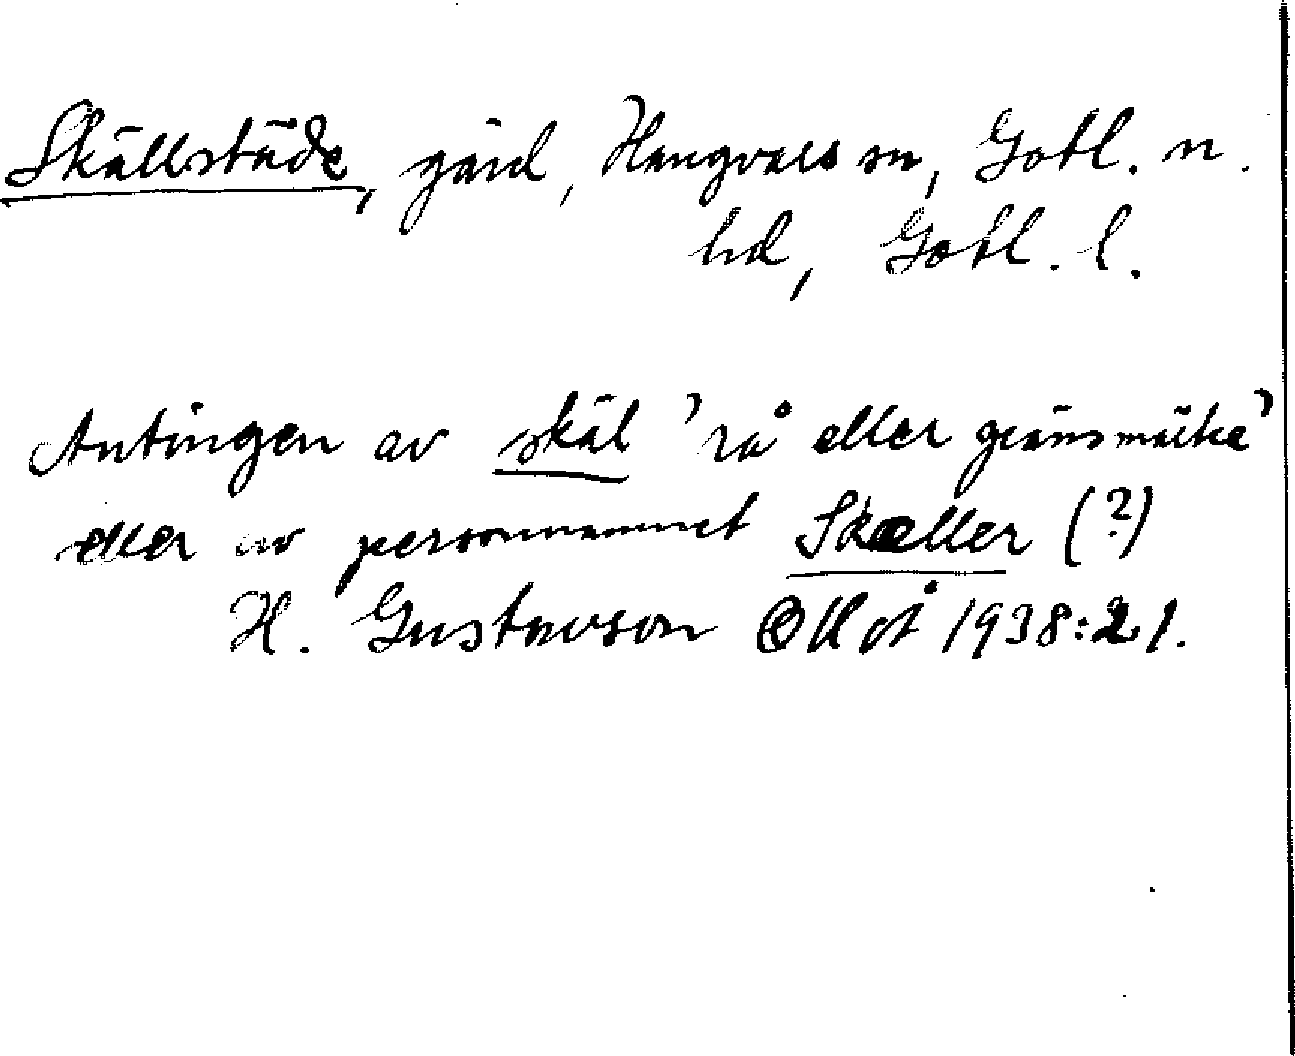 Skällstäde, gård, Hangvars sn, Gotl. n.
hd, Gotl. l.
Antingen av skäl 'rå eller gränsmärke'
eller av personnamnet Skæller (?)
H. Gustavson 1938:21.